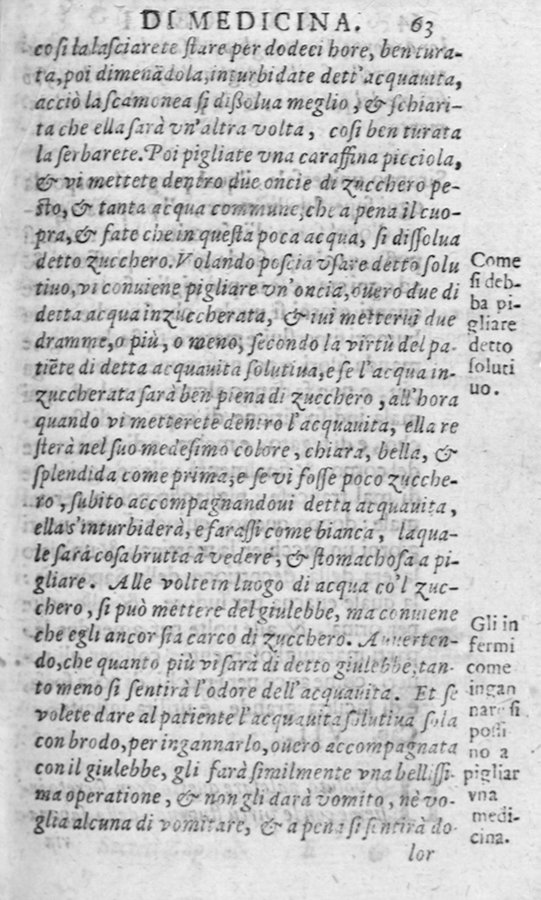 DI MEDICINA. 63
cosi la lasciarete stare per dodeci hore, ben tura-
ta, poi dimenādola, inturbidate dett'acquauita,
acciò la scamonea si dißolua meglio, & schiari-
ta che ella sarà vn'altra volta, cosi ben turata
la serbarete. Poi pigliate vna caraffina picciola,
& vi mettete dentro due oncie di zucchero pe-
sto, & tanta acqua commune, che a pena il cuo-
pra, & fate che in questa poca acqua, si dissolua
detto zucchero. Volendo poscia vsare detto solu
tiuo, vi conuiene pigliare vn'oncia, ouero due di
detta acqua inzuccherata, & iui metterui due
dramme, o più, o meno, secondo la virtù del pa-
tiēte di detta acquauita solutiua, e se l'acqua in-
zuccherata sarà ben piena di zucchero, all'hora
quando vi metterete dentro l'acquauita, ella re
sterà nel suo medesimo colore, chiara, bella, &
splendida come prima; e se vi fosse poco zucche-
ro, subito accompagnandoui detta acquauita,
ella s'inturbiderà, e farassi come bianca, laqua-
le sarà cosa brutta à vedere, & stomachosa a pi-
gliare. Alle volte in luogo di acqua co'l zuc-
chero, si può mettere del giulebbe, ma conuiene
che egli ancor sia carco di zucchero. Auuerten-
do, che quanto più vi sarà di detto giulebbe, tan-
to meno si sentirà l'odore dell'acquauita. Et se
volete dare al patiente l'acquauita solutiua sola
con brodo, per ingannarlo, ouero accompagnata
con il giulebbe, gli farà similmente vna bellissi-
ma operatione, & non gli darà vomito, nè vo-
glia alcuna di vomitare, & a pena si sentirà do-
lor
Come
si deb-
ba pi-
gliare
detto
soluti
uo.
Gli in
fermi
come
ingan
nare si
possi
no a
pigliar
vna
medi-
cina.